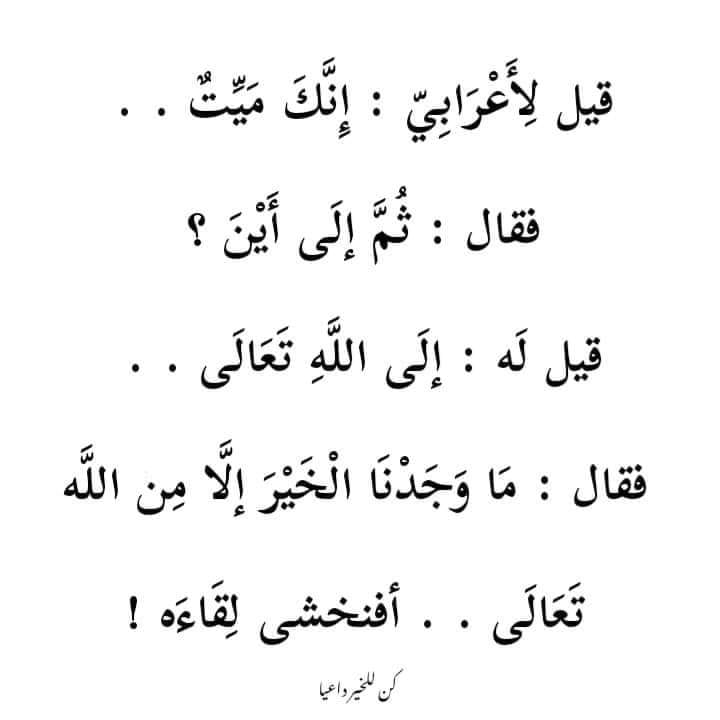 قيل لِأَعْرَابِيّ : إِنَّكَ مَيِّتٌ . .
فقال : ثُمَّ إلَى أَيْنَ ؟
قيل لَه : إلَى اللَّهِ تَعَالَى . .
فقال : مَا وَجَدْنَا الْخَيْرَ إلَّا مِن اللَّه
تَعَالَى . . أفنخشى لِقَاءَه !
كن للخير داعيا